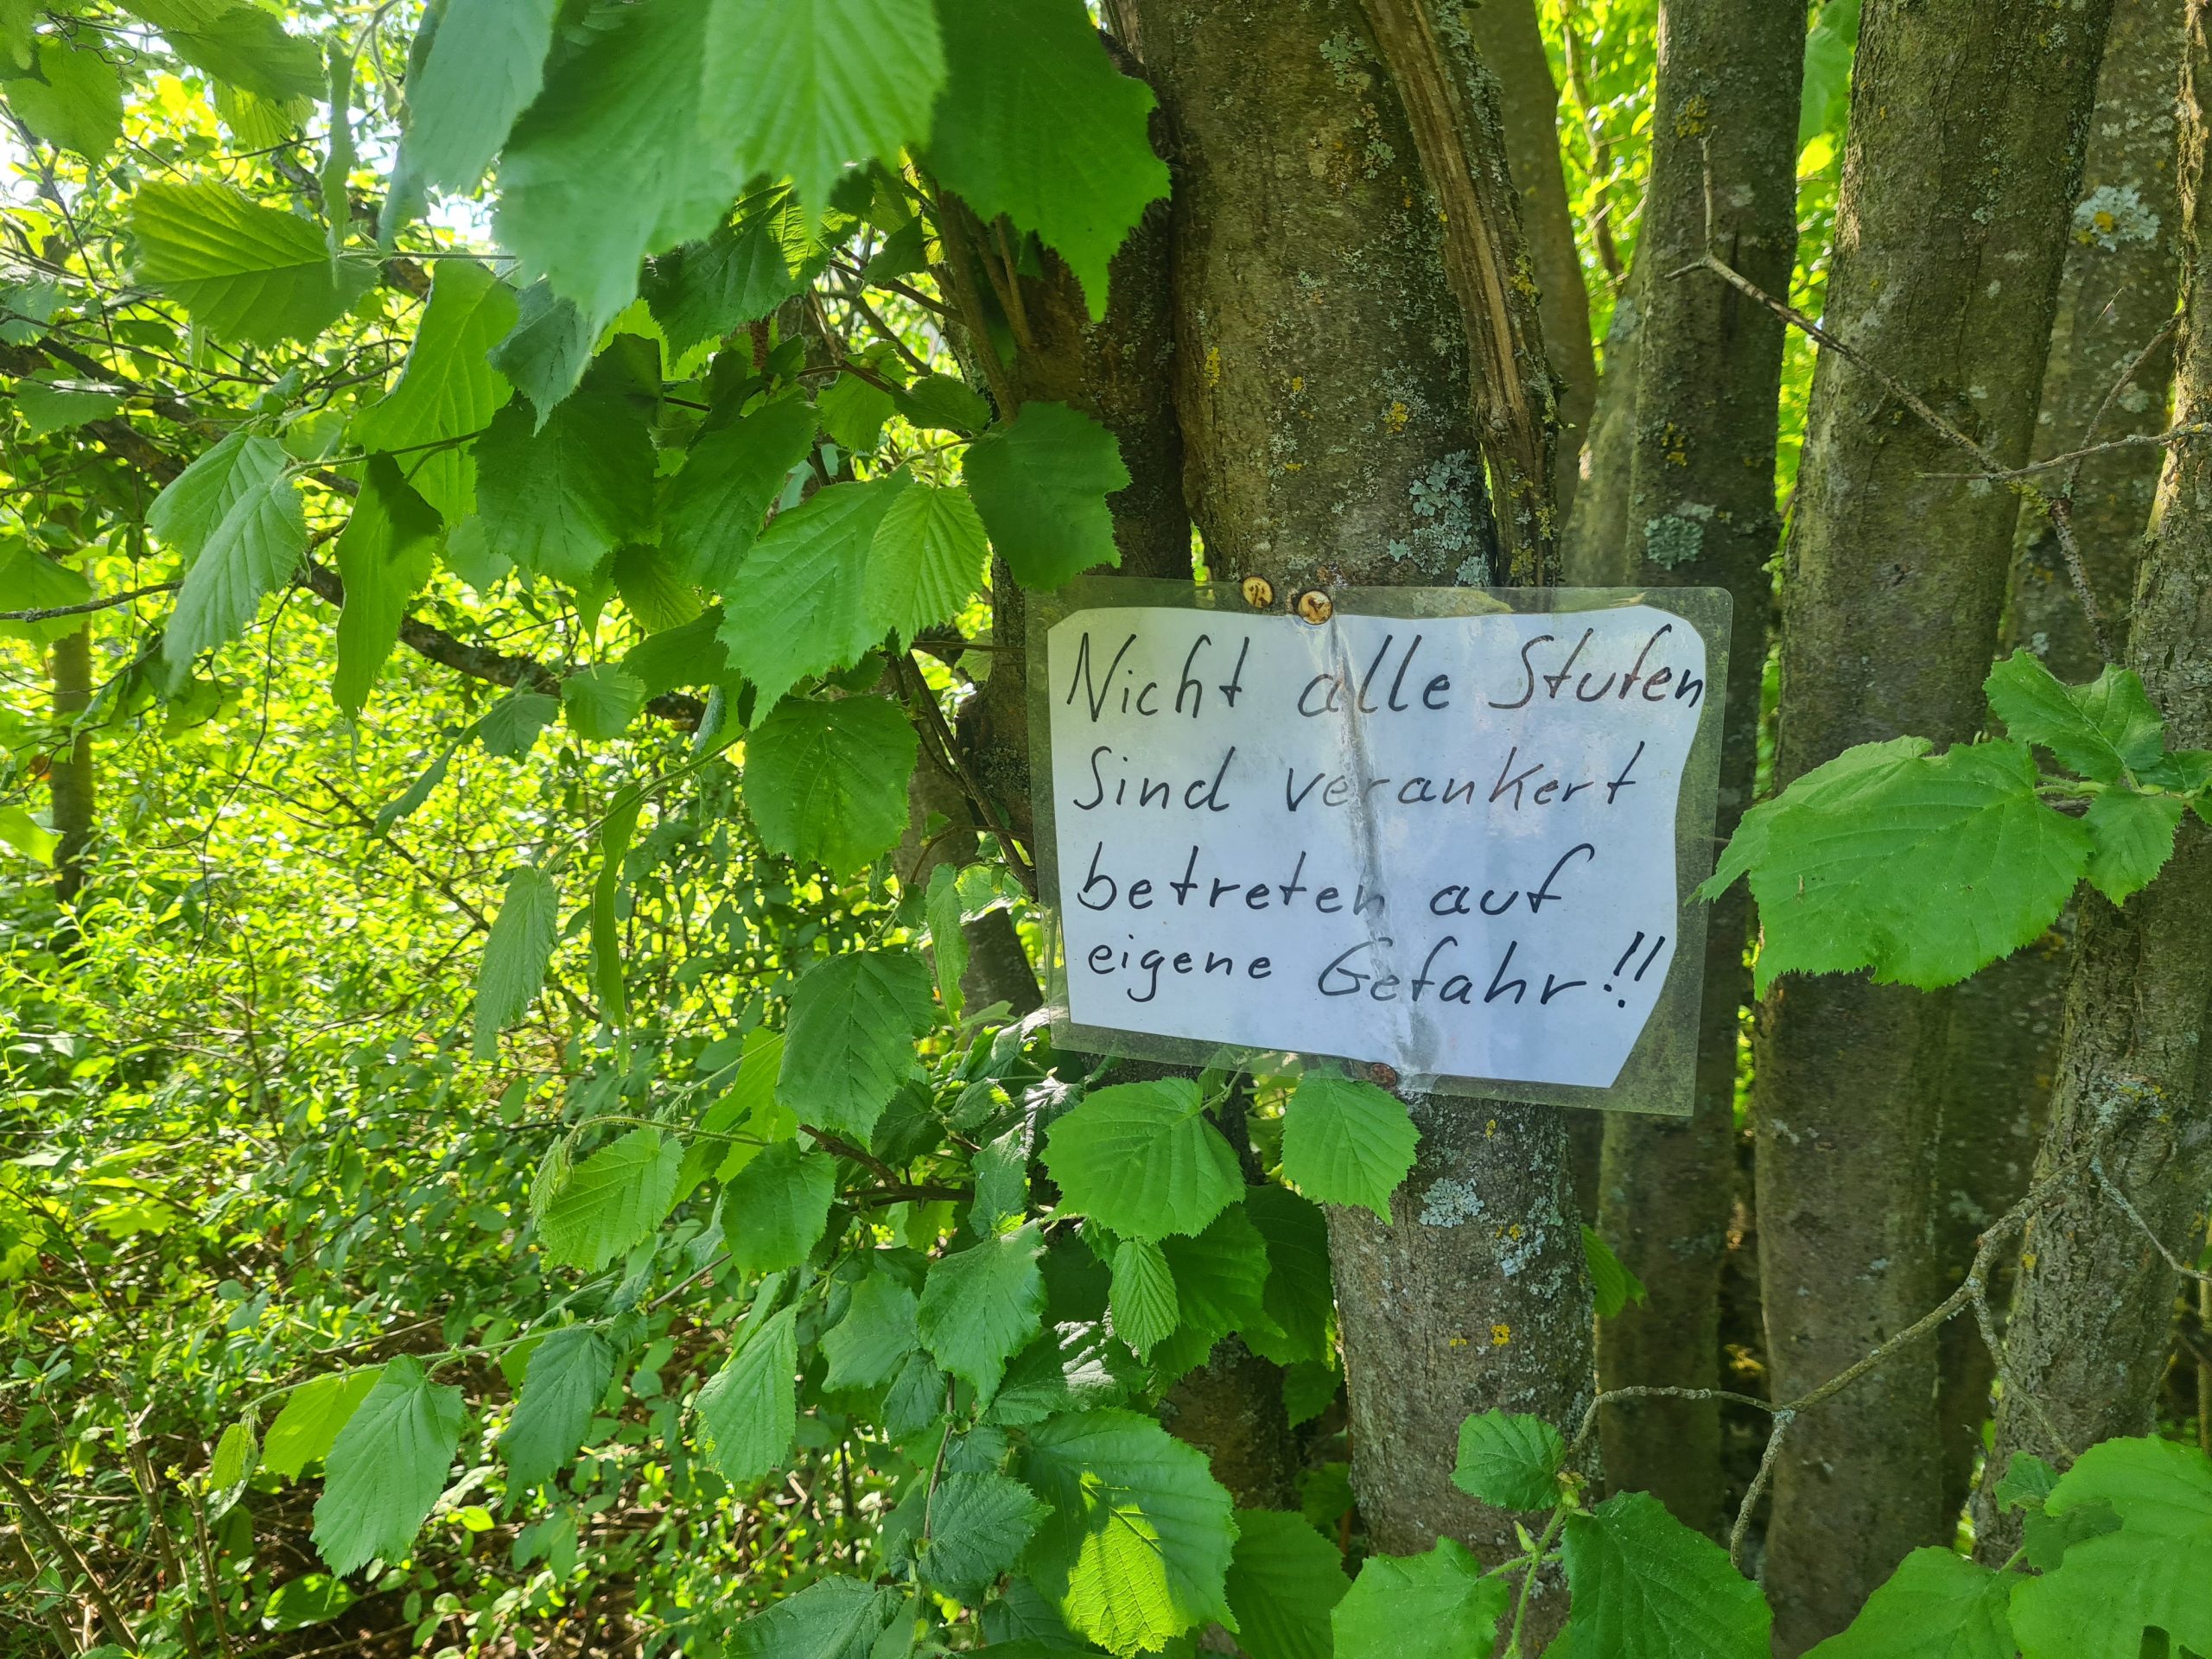 Nicht alle Stufen
Sind verankert
betreten auf
eigene Gefahr!!